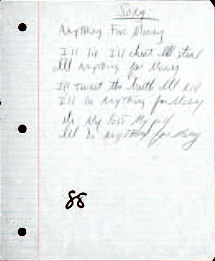 Song
Anything For Money
I'll lie I'll cheat I'll steal
I'll Anything for Money
I'll Twist the Truth I'll
I'll do Anything for Money
My
I'll do anything for Money
88